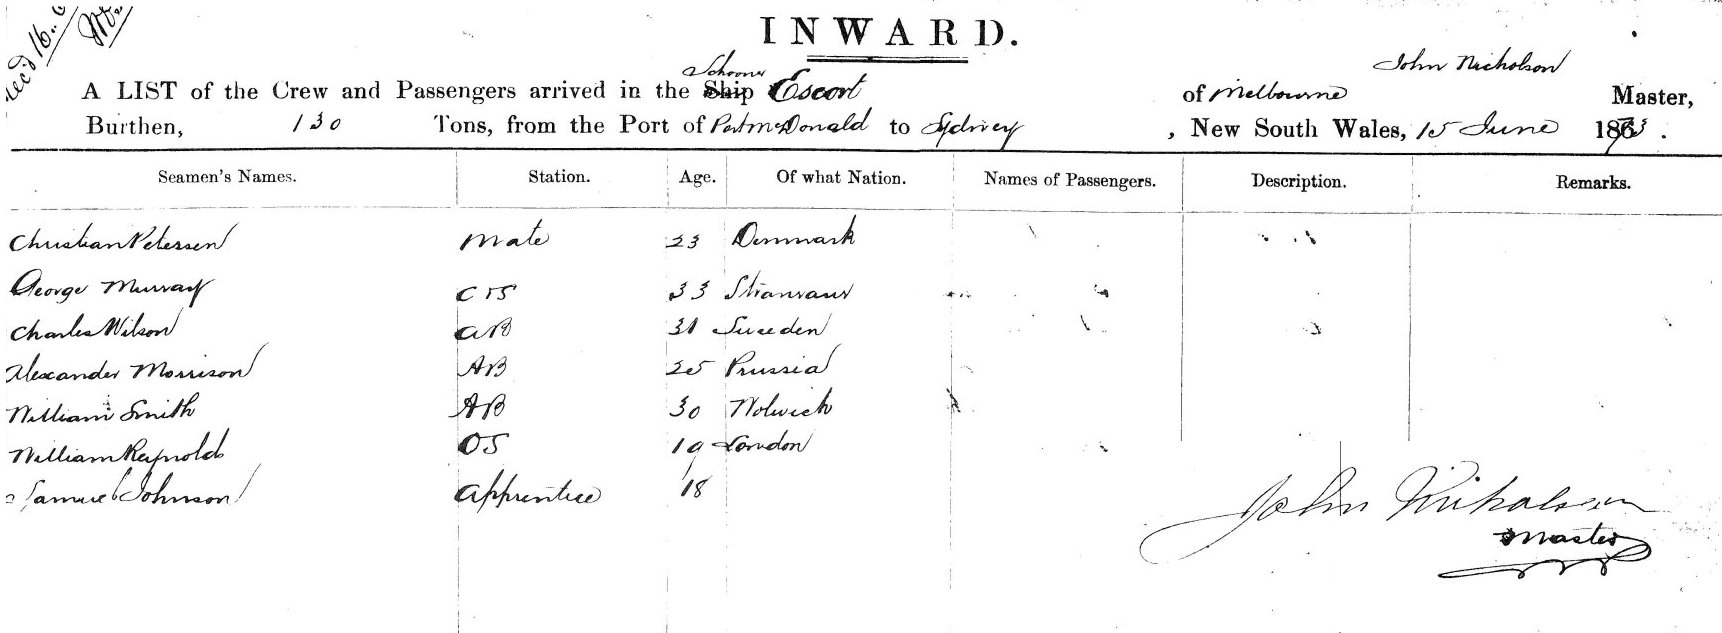 Rec'd 16
INWARD.
John Nicholson
Schooner
A LIST of the Crew and Passengers arrived in the Ship Escort of Melbourne Master,
Burthen, 130 Tons, from the Port of Port McDonald to Sydney, New South Wales, 15 June 1873.
Seamen's Names. Station. Age. Of what Nation. Names of Passengers. Description. Remarks.
Christian Petersen Mate 23 Denmark
George Murray 33
Charles Wilson AB 31 Sweden
Alexander Morrison AB 25 Prussia
William Smith AB 30 Wolwich
William Reynolds OS 19 London
Samuel Johnson Apprentice 18
John Nicholson
Master